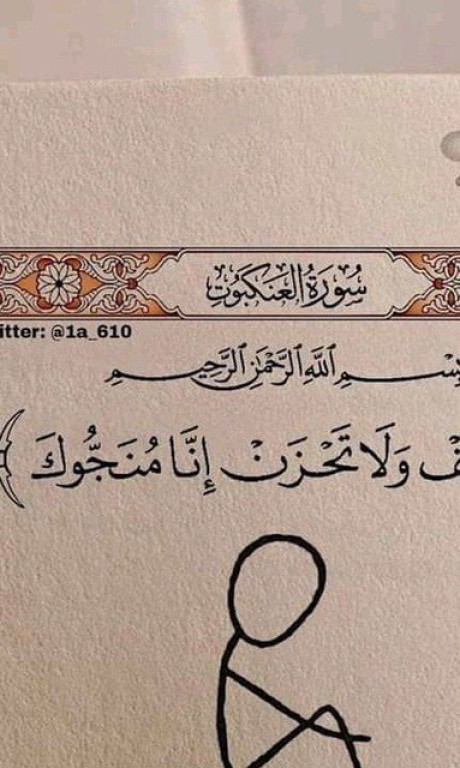 سُورَةُ العَنكَبُوتِ
itter: @1a_610
بِسْمِ ٱللَّهِ ٱلرَّحْمَٰنِ ٱلرَّحِيمِ
ـفْ وَلَا تَحْزَنْ إِنَّا مُنَجُّوكَ ﴾